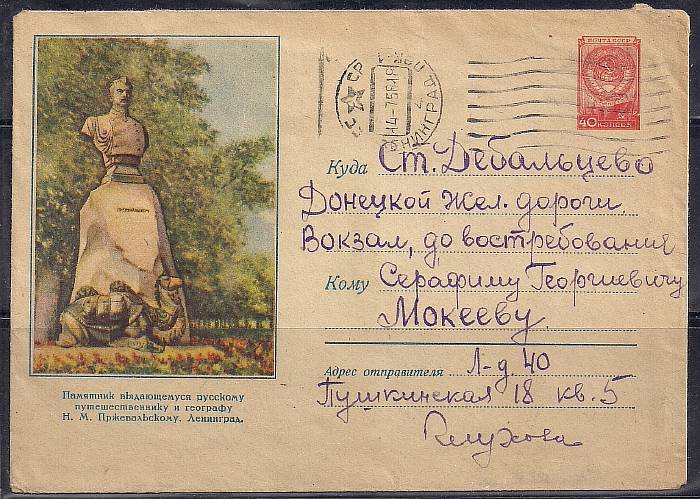 ПОЧТА СССР
40 КОПЕЕК
ЛЕНИНГРАД
Куда Ст. Дебальцево
Донецкой Жел. дороги
Вокзал, до востребования
Кому Серафиму Георгиевичу
Мокееву
Адрес отправителя Л-д 40
Пушкинская 18 кв. 5
Памятник выдающемуся русскому
путешественнику и географу
Н. М. Пржевальскому. Ленинград.